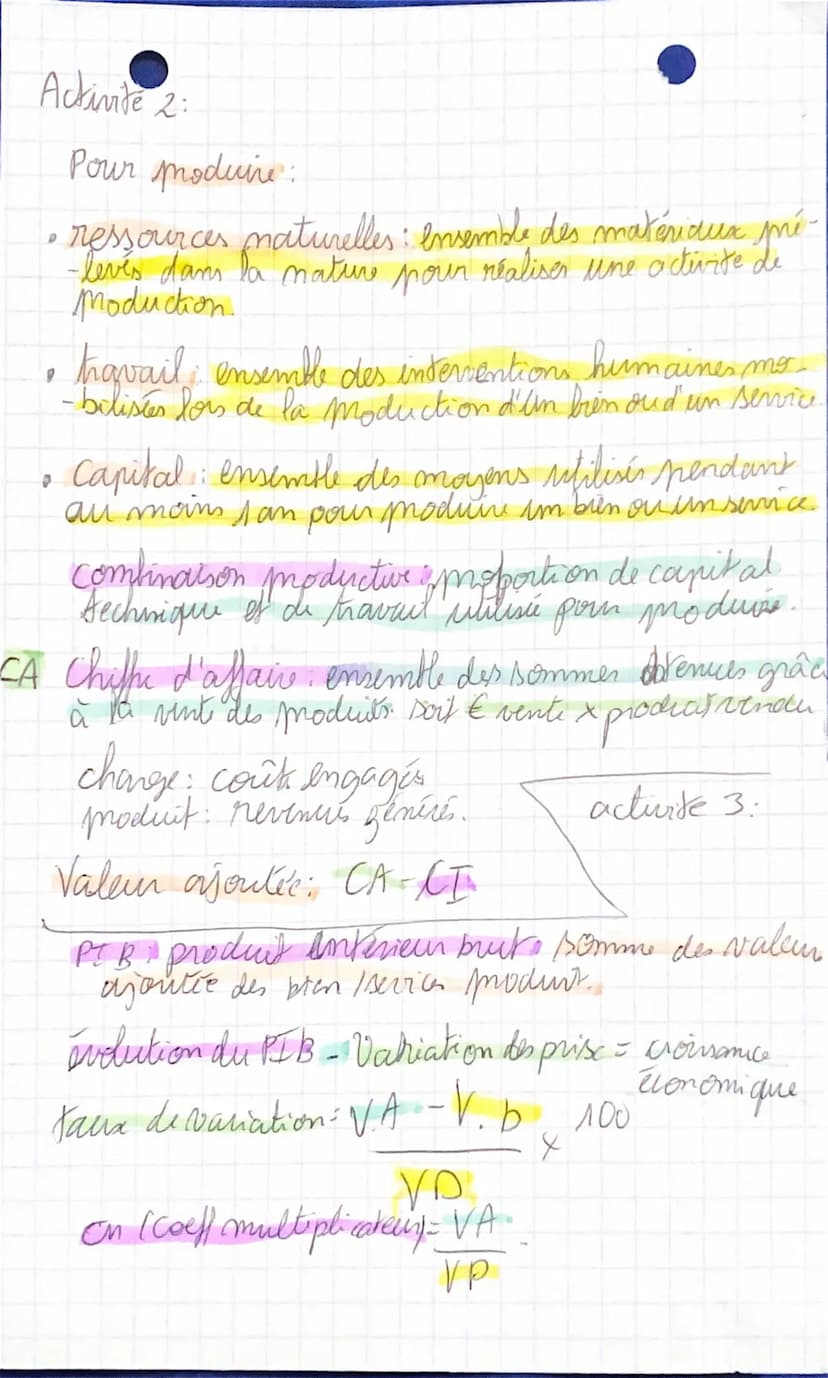 Activité 2:
Pour produire :
• ressources naturelles : ensemble des matériaux pré-
-levés dans la nature pour réaliser une activité de
production.
• travail : ensemble des interventions humaines mo-
-bilisées lors de la production d'un bien ou d'un service
• Capital : ensemble des moyens utilisés pendant
au moins 1 an pour produire un bien ou un service.
combinaison productive : proportion de capital
technique et de travail utilisée pour produire.
CA Chiffre d'affaire : ensemble des sommes obtenues grâc
à la vente des produits soit € vente x produit vendu
charge : coûts engagés
produit : revenus générés.
activité 3 :
Valeur ajoutée : CA - CI
PIB : produit intérieur brut. somme des valeurs
ajoutée des bien / services produit.
évolution du PIB - Variation des prix = croissance
économique
taux de variation = V.A - V.D x 100
VD
cm (coeff multiplicateur) = VA
VD